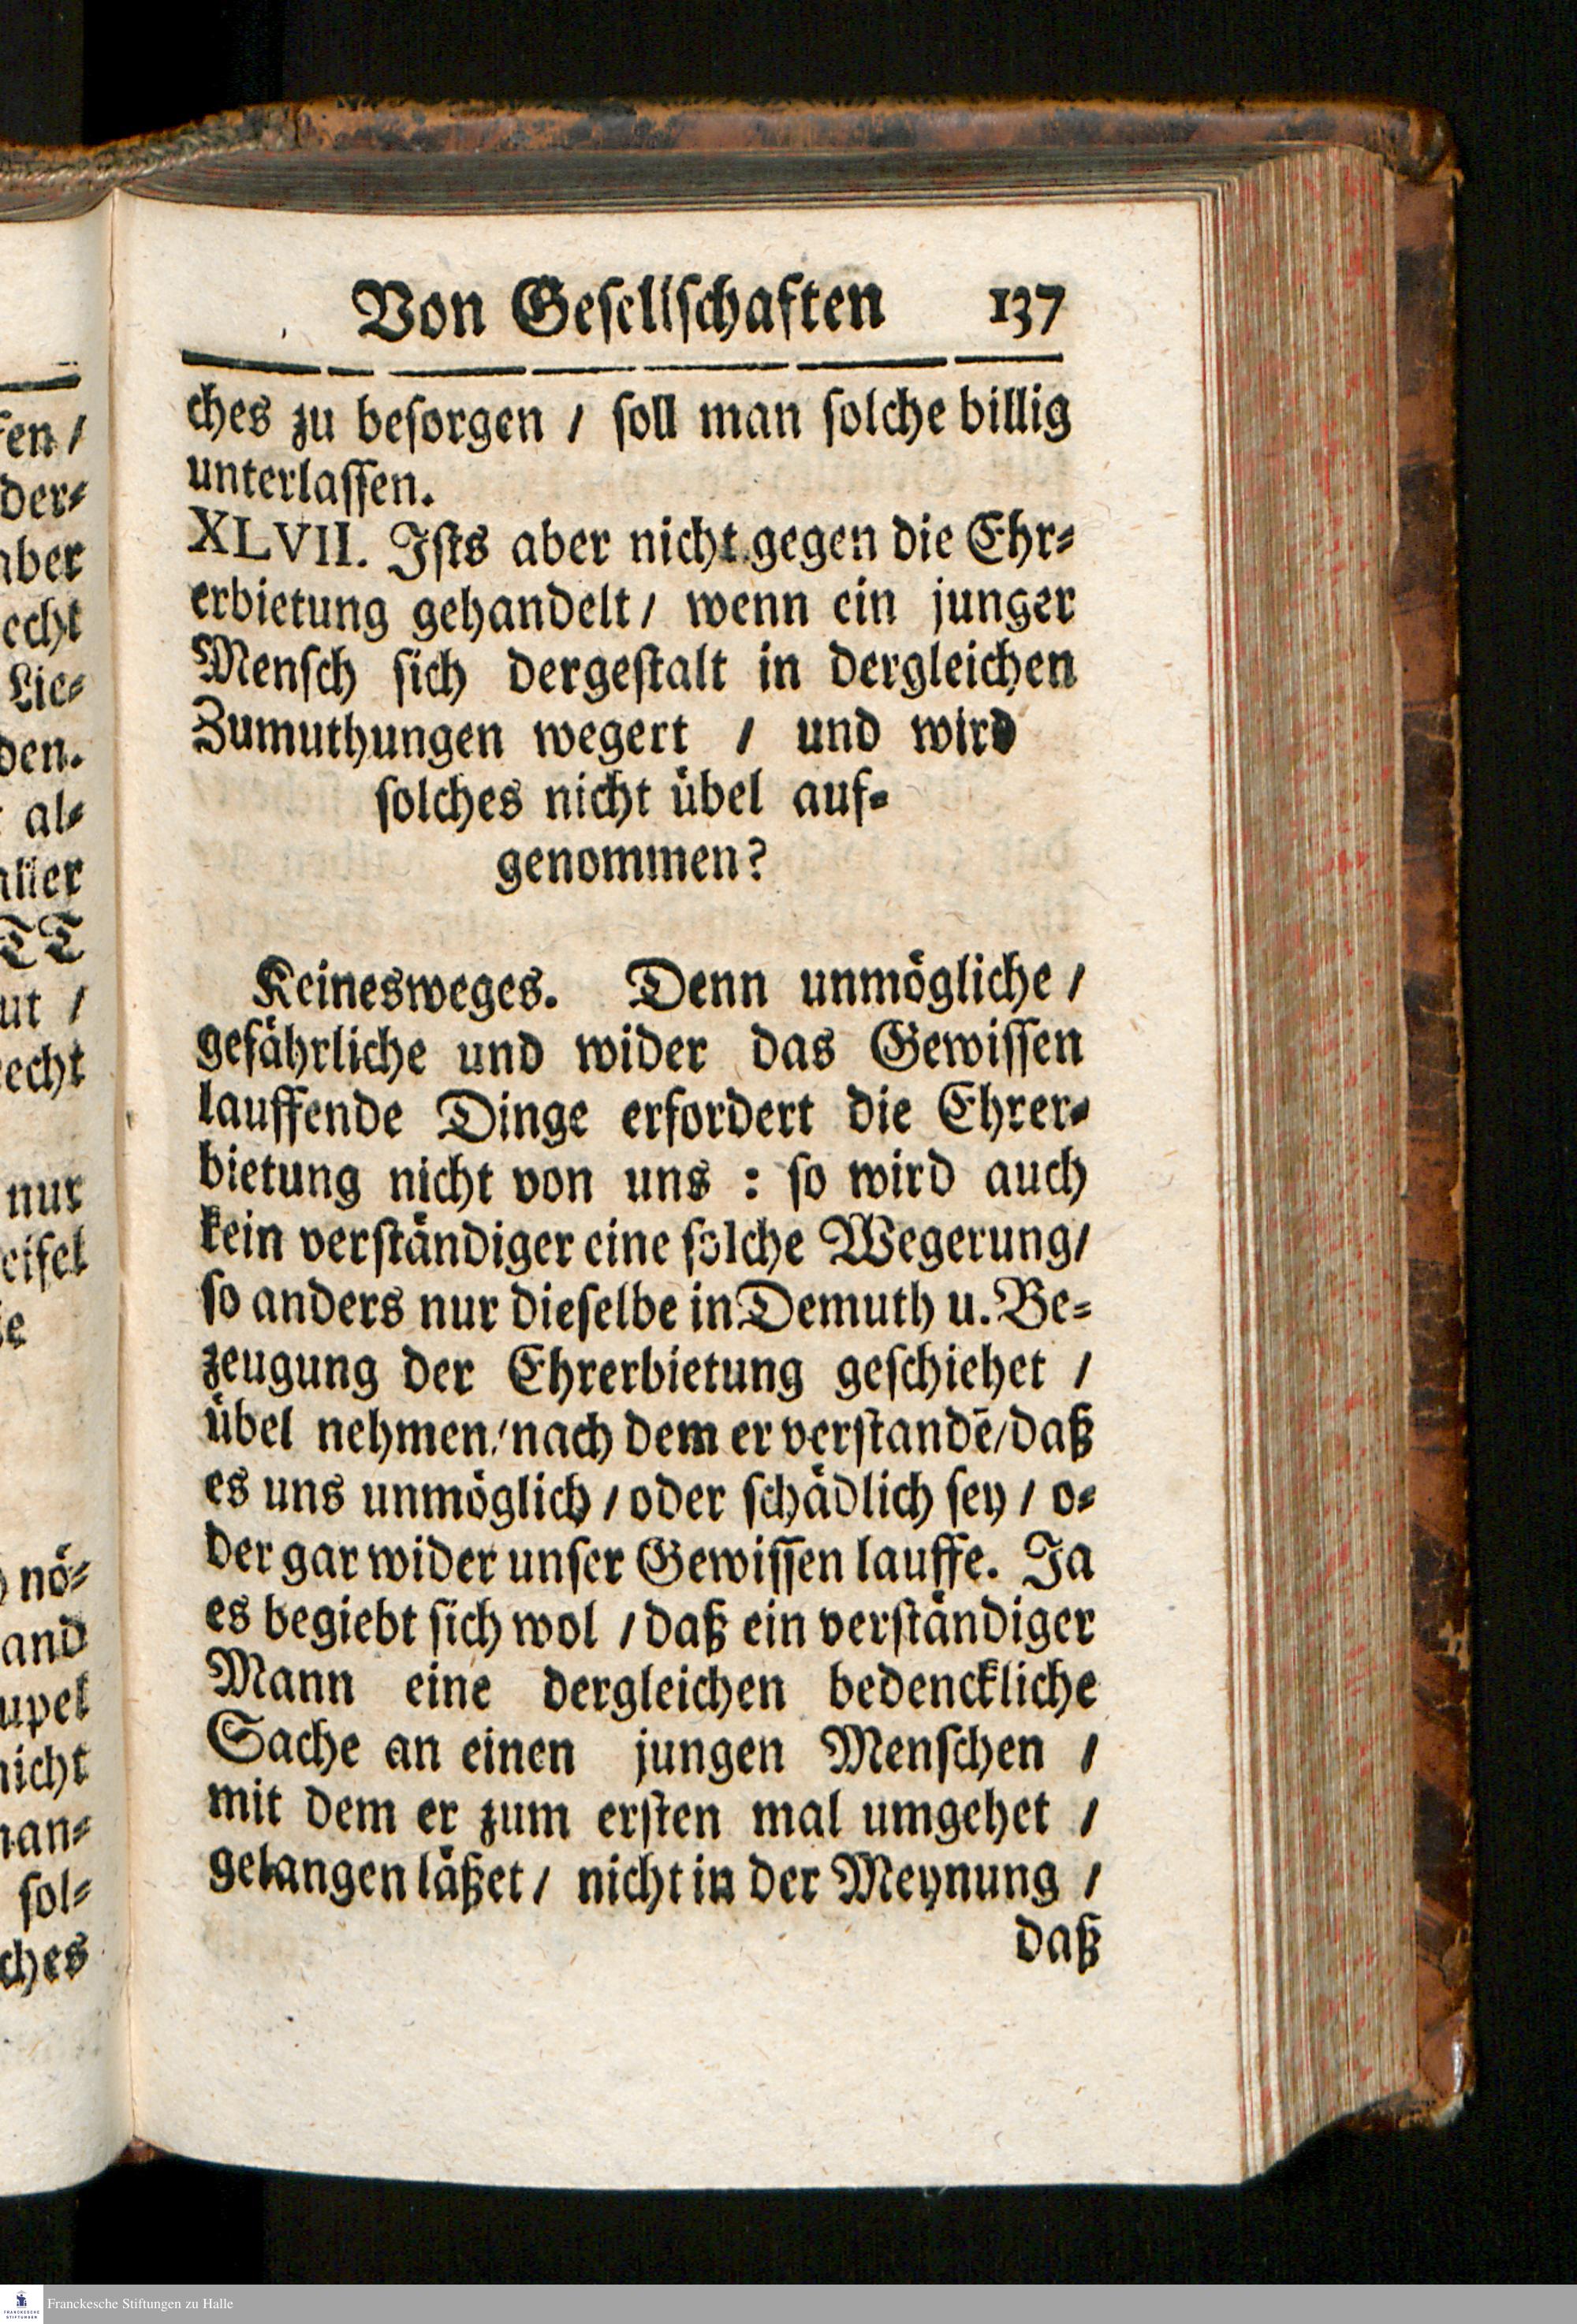 Von Gesellschaften 137
ches zu besorgen / soll man solche billig
unterlassen.
XLVII. Ists aber nicht gegen die Ehr⸗
erbietung gehandelt / wenn ein junger
Mensch sich dergestalt in dergleichen
Zumuthungen wegert / und wird
solches nicht übel auf⸗
genommen?
Keinesweges. Denn unmögliche /
gefährliche und wider das Gewissen
lauffende Dinge erfordert die Ehrer⸗
bietung nicht von uns : so wird auch
kein verständiger eine solche Wegerung /
so anders nur dieselbe in Demuth u. Be⸗
zeugung der Ehrerbietung geschiehet /
übel nehmen / nach dem er verstandē / daß
es uns unmöglich / oder schädlich sey / o⸗
der gar wider unser Gewissen lauffe. Ja
es begiebt sich wol / daß ein verständiger
Mann eine dergleichen bedenckliche
Sache an einen jungen Menschen /
mit dem er zum ersten mal umgehet /
gelangen läßet / nicht in der Meynung /
daß
fen /
der⸗
aber
echt
Lie⸗
den.
al⸗
TT
ut /
echt
nur
eifel
nö⸗
and
upel
nicht
an⸗
sol⸗
ches
Franckesche Stiftungen zu Halle